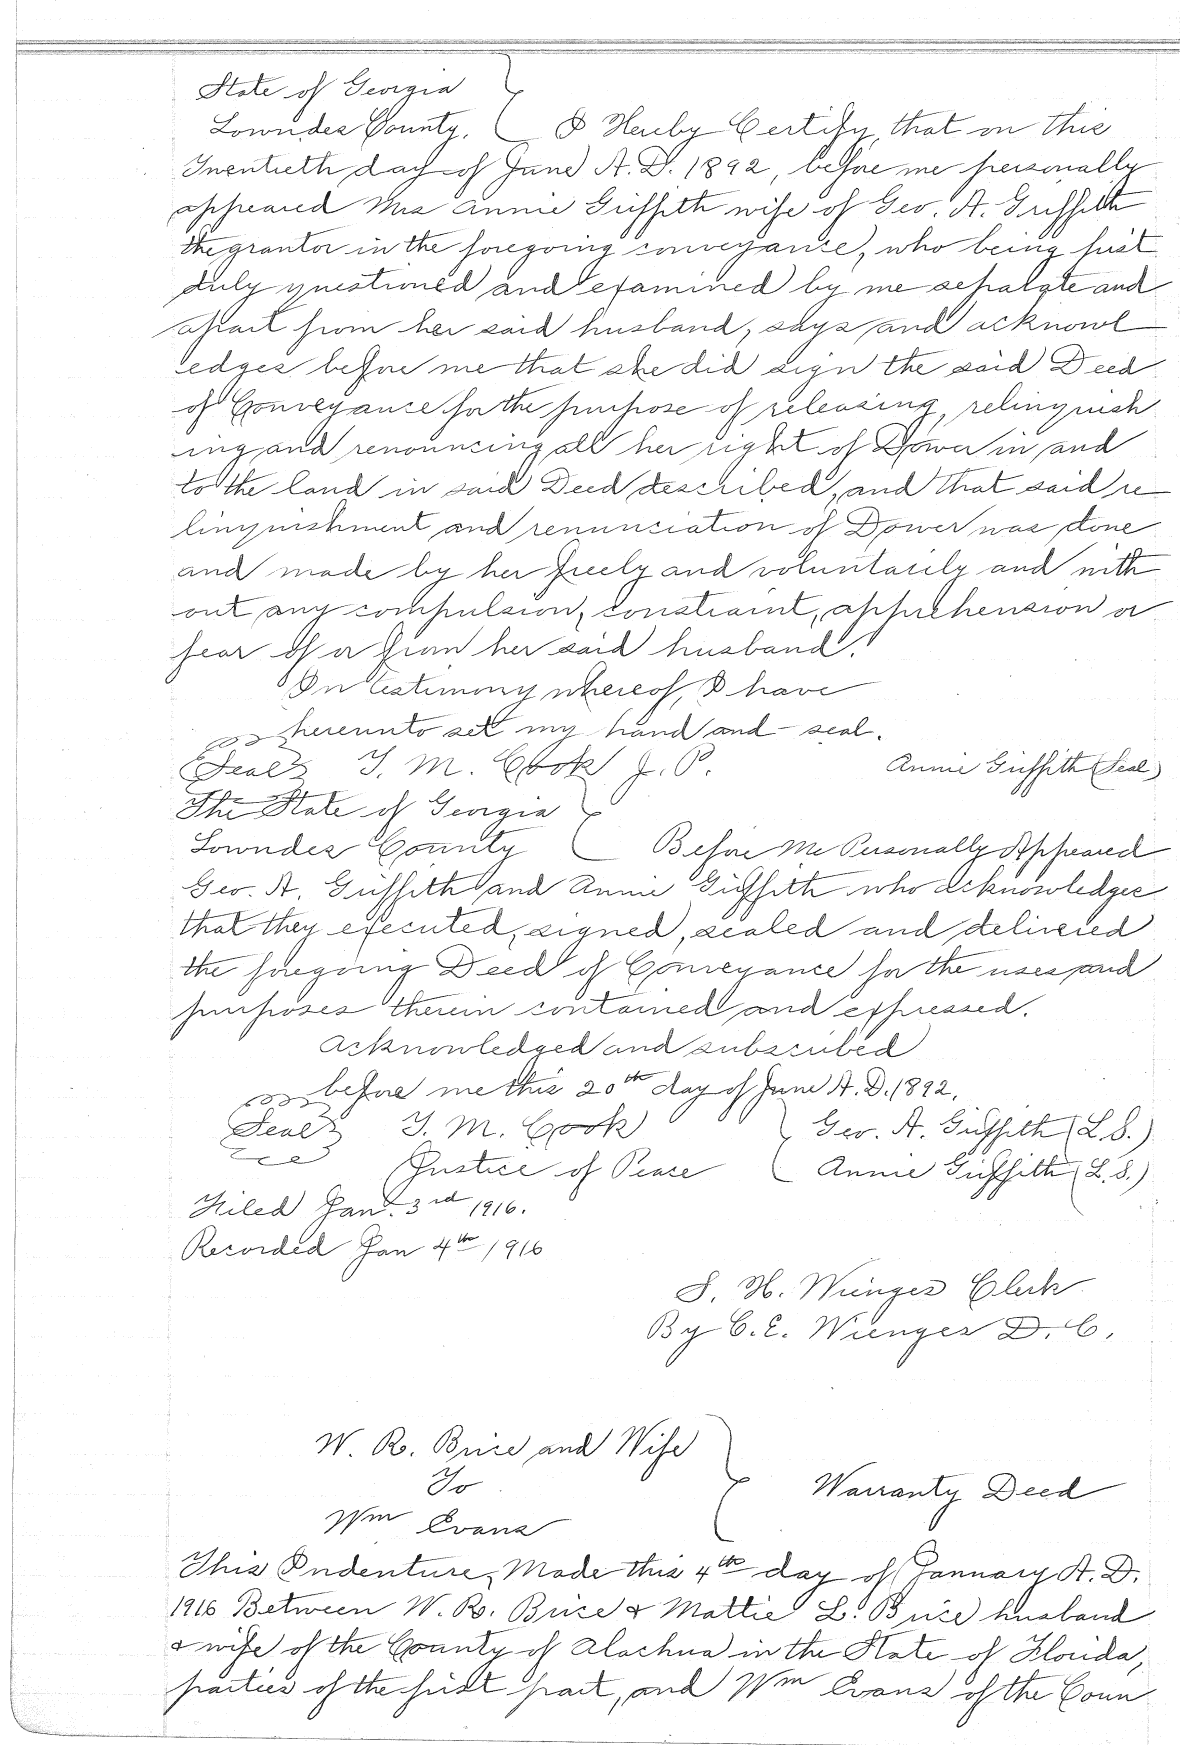 State of Georgia
Lowndes County. I Hereby Certify, that on this
Twentieth day of June A.D. 1892, before me personally
appeared Mrs Annie Griffith wife of Geo. A. Griffith
the grantor in the foregoing conveyance, who being first
duly questioned and examined by me separate and
apart from her said husband, says and acknowl
edges before me that she did sign the said Deed
of Conveyance for the purpose of releasing, relinquish
ing and renouncing all her right of Dower in and
to the land in said Deed described, and that said re
linquishment and renunciation of Dower was done
and made by her freely and voluntarily and with
out any compulsion, constraint, apprehension or
fear of or from her said husband.
In testimony whereof, I have
hereunto set my hand and seal.
Seal T. M. Cook J. P. Annie Griffith (Seal)
The State of Georgia
Lowndes County Before Me Personally Appeared
Geo. A. Griffith and Annie Griffith who acknowledges
that they executed, signed, sealed and delivered
the foregoing Deed of Conveyance for the uses and
purposes therein contained and expressed.
Acknowledged and subscribed
before me this 20th day of June A.D. 1892.
Seal T. M. Cook Geo. A. Griffith (L.S.)
Justice of Peace Annie Griffith (L.S.)
Filed Jan. 3rd 1916.
Recorded Jan 4th 1916
S. H. Wienges Clerk
By C. E. Wienges D. C.
W. R. Brice and Wife
To Warranty Deed
Wm Evans
This Indenture, Made this 4th day of January A. D.
1916 Between W. R. Brice & Mattie L. Brice husband
& wife of the County of Alachua in the State of Florida,
parties of the first part, and Wm Evans of the Coun